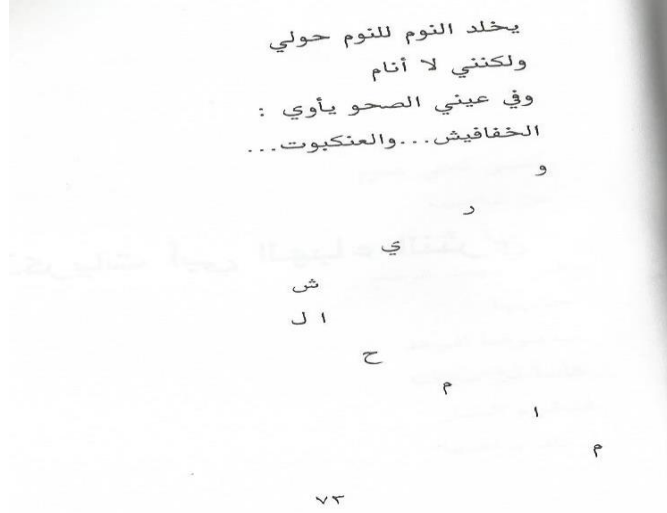 يخلد النوم للنوم حولي
ولكنني لا أنام
وفي عيني الصحو يأوي :
الخفافيش...والعنكبوت...
و
ر
ي
ش
ا ل
ح
م
ا
م
٧٣